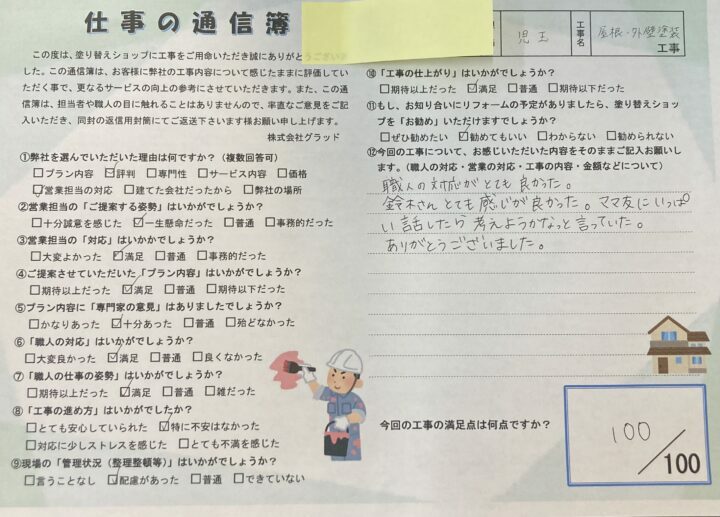 仕事の通信簿
児玉
工事名
屋根・外壁塗装
工事
この度は、塗り替えショップに工事をご用命いただき誠にありがとうござい
した。この通信簿は、お客様に弊社の工事内容について感じたままに評価してい
ただく事で、更なるサービスの向上の参考にさせていただきます。また、この通
信簿は、担当者や職人の目に触れることはありませんので、率直なご意見をご記
入いただき、同封の返信用封筒にてご返送下さいます様お願い申し上げます。
株式会社グラッド
①弊社を選んでいただいた理由は何ですか?(複数回答可)
□プラン内容 ☑評判 □専門性 □サービス内容 □価格
☑営業担当の対応 □建てた会社だったから □弊社の場所
②営業担当の「ご提案する姿勢」はいかがでしたか?
□十分誠意を感じた ☑一生懸命だった □普通 □事務的だった
③営業担当の「対応」はいかがでしょうか?
□大変よかった ☑満足 □普通 □事務的だった
④ご提案させていただいた「プラン内容」はいかがでしょうか?
□期待以上だった ☑満足 □普通 □期待以下だった
⑤プラン内容に「専門家の意見」はありましたでしょうか?
□かなりあった ☑十分あった □普通 □殆どなかった
⑥「職人の対応」はいかがでしょうか?
□大変良かった ☑満足 □普通 □良くなかった
⑦「職人の仕事の姿勢」はいかがでしょうか?
□期待以上だった ☑満足 □普通 □雑だった
⑧「工事の進め方」はいかがでしたか?
□とても安心していられた ☑特に不安はなかった
□対応に少しストレスを感じた □とても不満を感じた
⑨現場の「管理状況(整理整頓等)」はいかがでしょうか?
□言うことなし ☑配慮があった □普通 □できていない
⑩「工事の仕上がり」はいかがでしょうか?
□期待以上だった ☑満足 □普通 □期待以下だった
⑪もし、お知り合いにリフォームの予定がありましたら、塗り替えショッ
プを「お勧め」いただけますでしょうか?
□ぜひ勧めたい ☑勧めてもいい □わからない □勧められない
⑫今回の工事について、お感じいただいた内容をそのままご記入お願い
します。(職人の対応・営業の対応・工事の内容・金額などについて)
職人の対応がとても良かった。
鈴木さんとても感じが良かった。ママ友にいっぱ
い話したら考えようかなっと言っていた。
ありがとうございました。
今回の工事の満足点は何点ですか?
100
/100